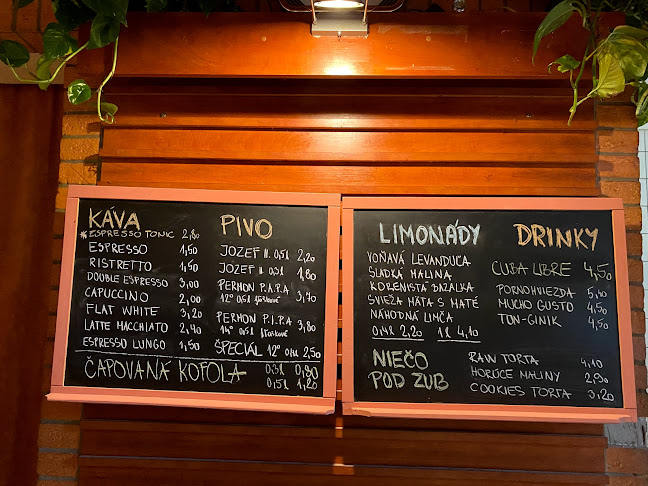 KÁVA
*ESPRESSO TONIC 2,80
ESPRESSO 1,50
RISTRETTO 1,50
DOUBLE ESPRESSO 3,00
CAPUCCINO 2,00
FLAT WHITE 3,20
LATTE MACCHIATO 2,40
ESPRESSO LUNGO 1,50
PIVO
JOZEF 11. 0,5l 2,20
JOZEF 11. 0,3l 1,80
PERHON P.A.P.A
12° 0,5l 3,70
PERHON P.I.P.A
14° 0,5l 3,80
ŠPECIÁL 12° 0,4l 2,50
ČAPOVANÁ KOFOLA 0,3l 0,90
0,5l 1,20
LIMONÁDY
VOŇAVÁ LEVANDUĽA
SLADKÁ MALINA
KORENISTÁ BAZALKA
SVIEŽA MÄTA S MATÉ
NÁHODNÁ LIMČA
0,4l 2,20 1l 4,10
DRINKY
CUBA LIBRE 4,50
PORNOHVIEZDA 5,10
MUCHO GUSTO 4,50
TON-GINIK 4,50
NIEČO
POD ZUB
RAW TORTA 4,10
HORÚCE MALINY 2,90
COOKIES TORTA 3,20